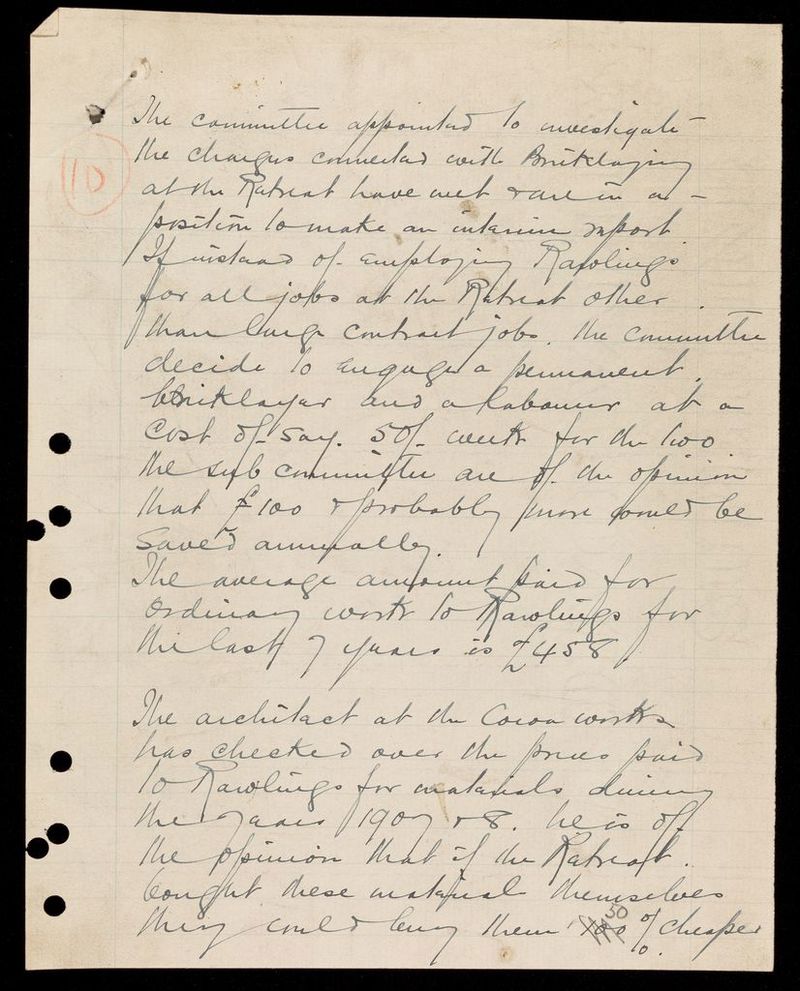 10
The committee appointed to investigate
the charges connected with Bricklaying
at the Retreat have met & are in a
position to make an interim report.
If instead of employing Rawlings
for all jobs at the Retreat other
than large contract jobs, the committee
decide to engage a permanent
bricklayer and a labourer at a
cost of say. 50/- week for the two
the sub committee are of the opinion
that £100 & probably more would be
saved annually.
The average amount paid for
ordinary work to Rawlings for
the last 7 years is £458.
The architect at the Cocoa works
has checked over the prices paid
to Rawlings for materials during
the years 1907 & 8. he is of
the opinion that if the Retreat
bought these materials themselves
they could buy them 50 % cheaper